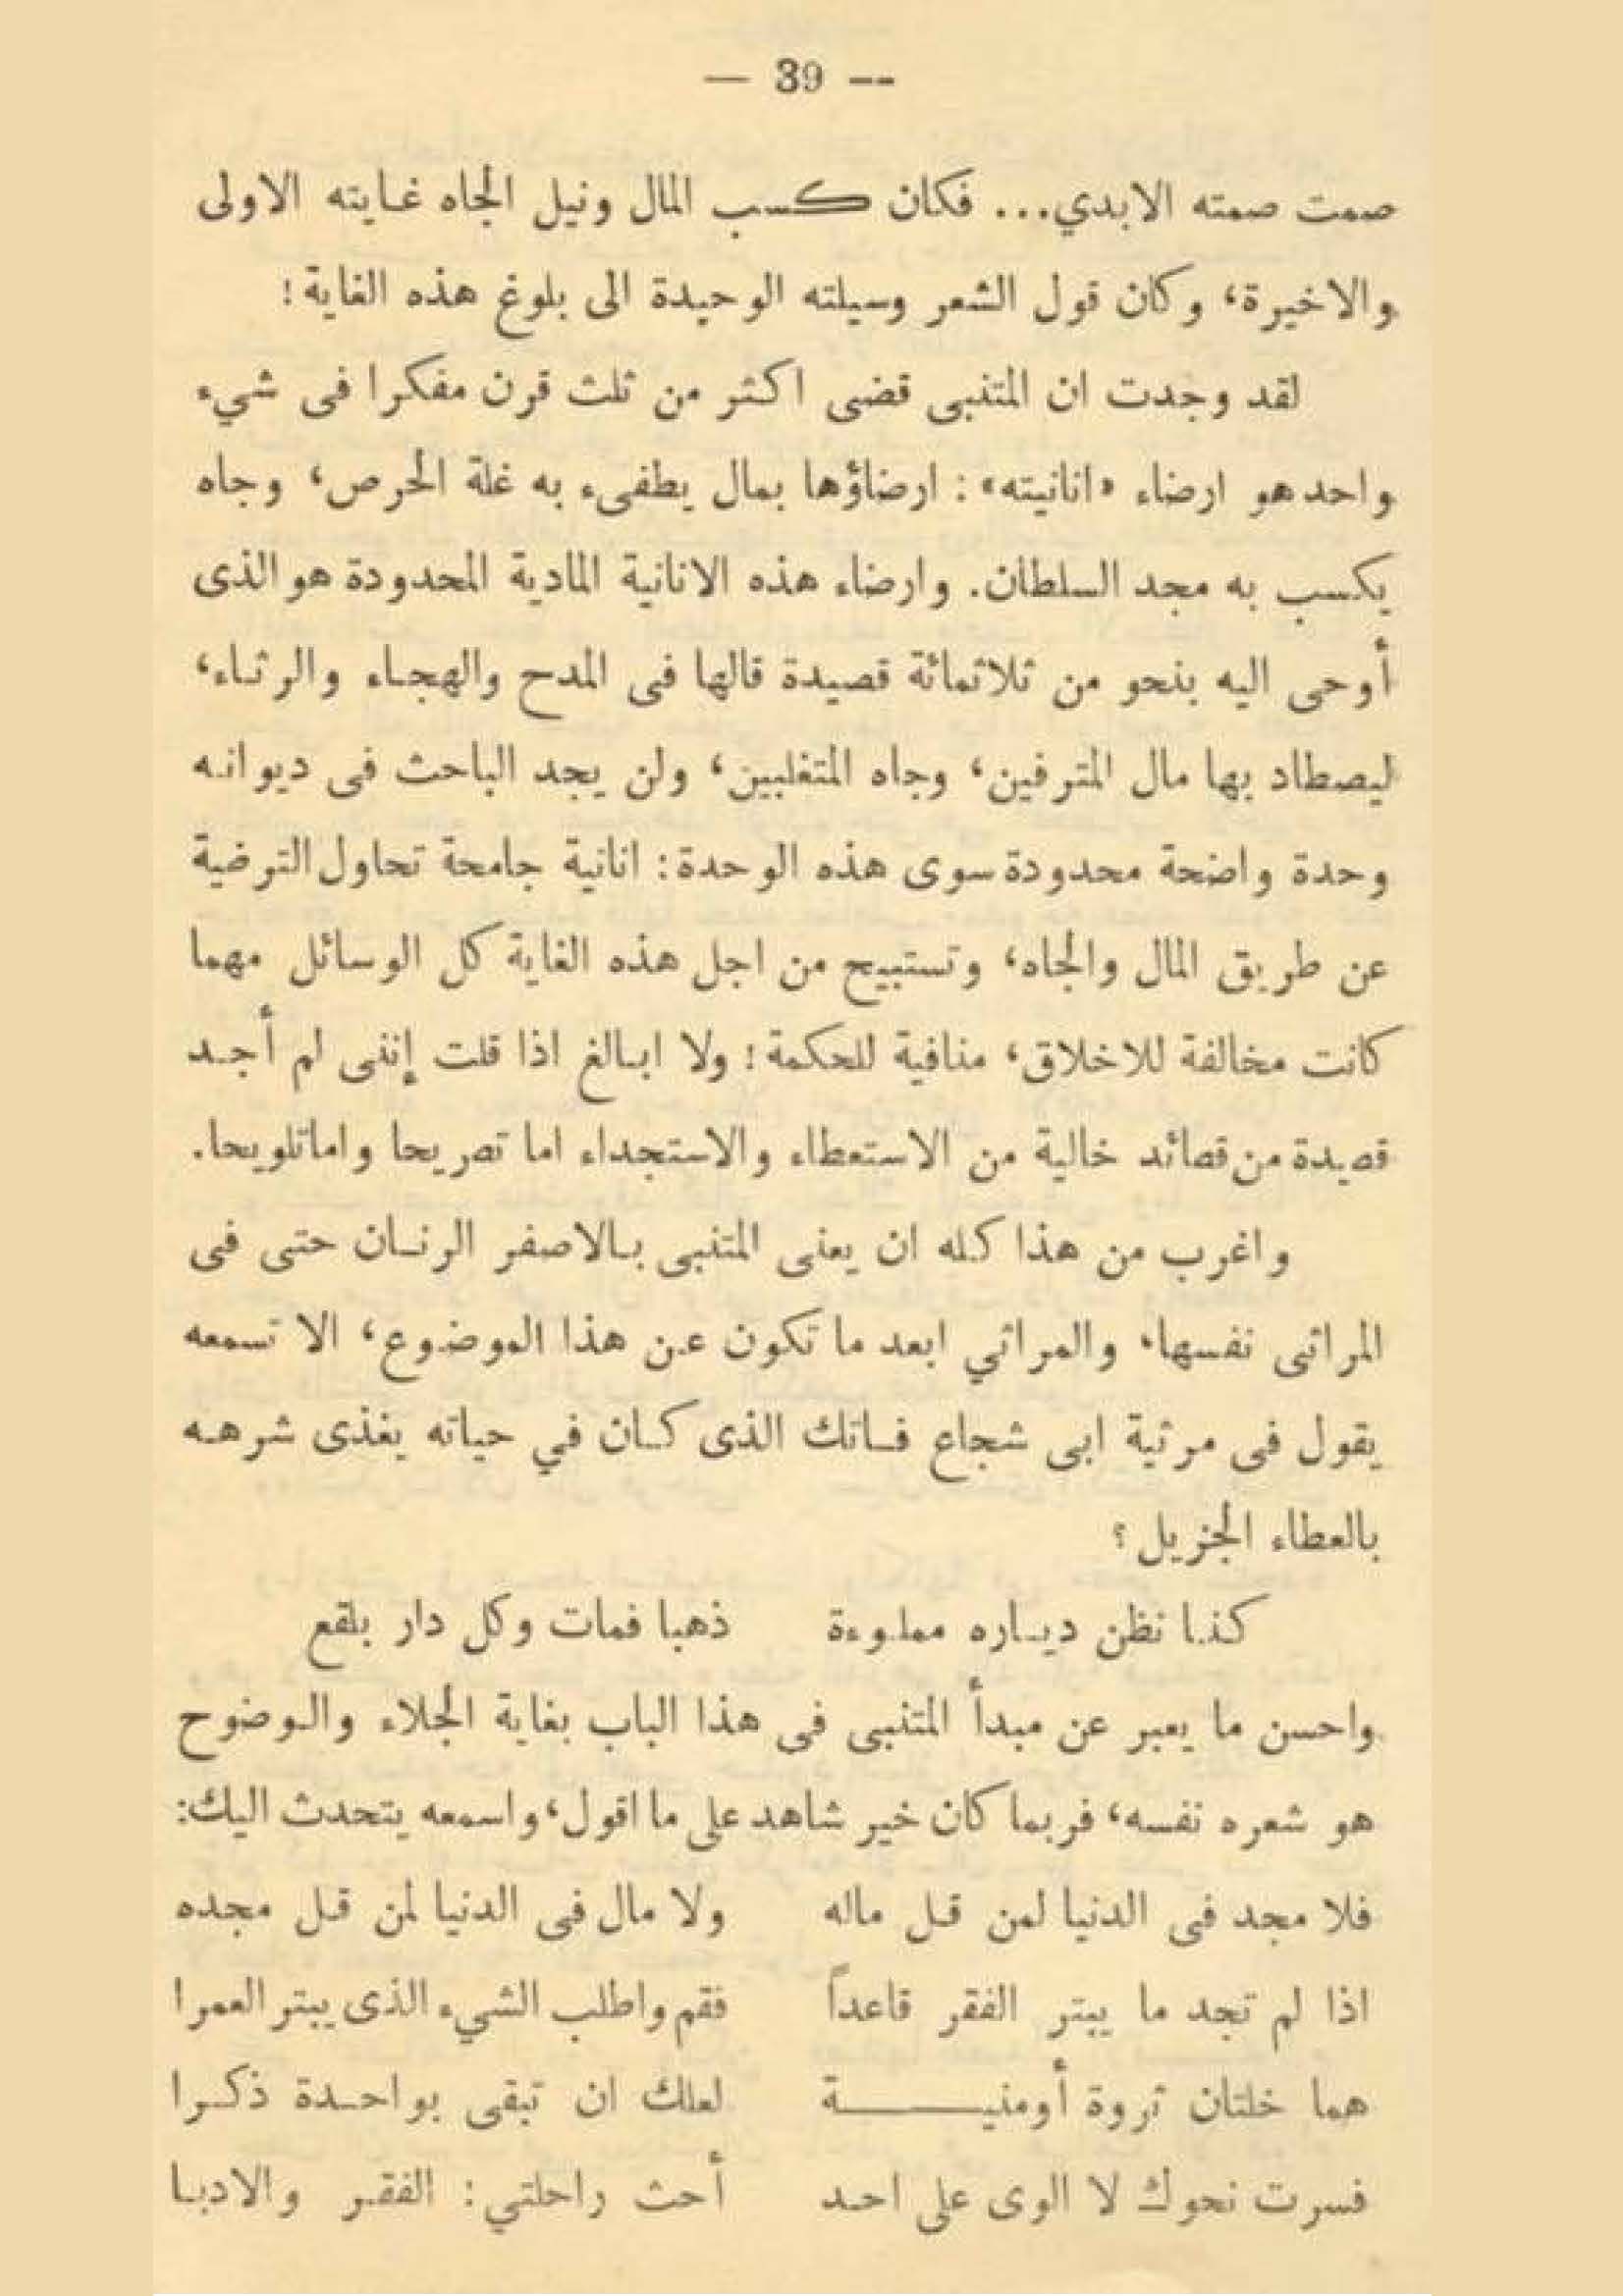 — 39 --
صمت صمته الابدي... فكان كسب المال ونيل الجاه غايته الاولى
والاخيرة، وكان قول الشعر وسيلته الوحيدة الى بلوغ هذه الغاية!
لقد وجدت ان المتنبى قضى اكثر من ثلث قرن مفكرا فى شيء
واحد هو ارضاء «انانيته»: ارضاؤها بمال يطفىء به غلة الحرص، وجاه
يكسب به مجد السلطان. وارضاء هذه الانانية المادية المحدودة هو الذى
أوحى اليه بنحو من ثلاثمائة قصيدة قالها فى المدح والهجاء والرثاء،
ليصطاد بها مال المترفين، وجاه المتغلبين، ولن يجد الباحث فى ديوانه
وحدة واضحة محدودة سوى هذه الوحدة: انانية جامحة تحاول الترضية
عن طريق المال والجاه، وتستبيح من اجل هذه الغاية كل الوسائل مهما
كانت مخالفة للاخلاق، منافية للحكمة! ولا ابالغ اذا قلت إننى لم أجد
قصيدة من قصائد خالية من الاستعطاء والاستجداء اما تصريحا واما تلويحا.
واغرب من هذا كله ان يعنى المتنبى بالاصفر الرنان حتى فى
المراثى نفسها، والمراثي ابعد ما تكون عن هذا الموضوع، الا تسمعه
يقول فى مرثية ابى شجاع فاتك الذى كان في حياته يغذى شرهه
بالعطاء الجزيل؟
كنا نظن دياره مملوءة ذهبا فمات وكل دار بلقع
واحسن ما يعبر عن مبدأ المتنبى فى هذا الباب بغاية الجلاء والوضوح
هو شعره نفسه، فربما كان خير شاهد على ما اقول، واسمعه يتحدث اليك:
فلا مجد فى الدنيا لمن قل ماله ولا مال فى الدنيا لمن قل مجده
اذا لم تجد ما يبتر الفقر قاعداً فقم واطلب الشيء الذى يبتر العمرا
هما خلتان ثروة أومنيـــــة لعلك ان تبقى بواحدة ذكرا
فسرت نحوك لا الوى على احد أحث راحلتي: الفقر والادبا